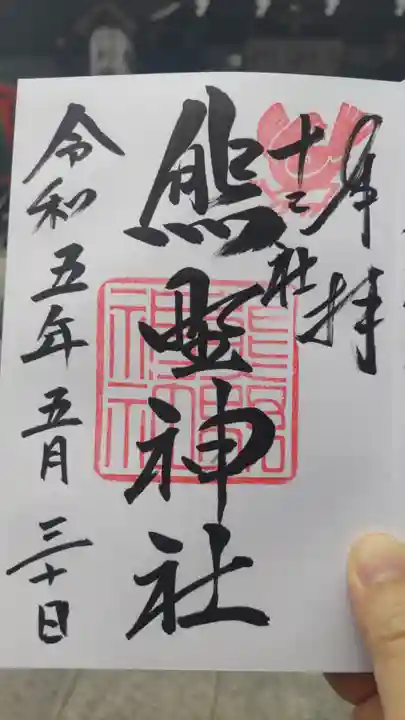 奉拝
十二社
熊野神社
令和五年五月三十日
熊野
神社